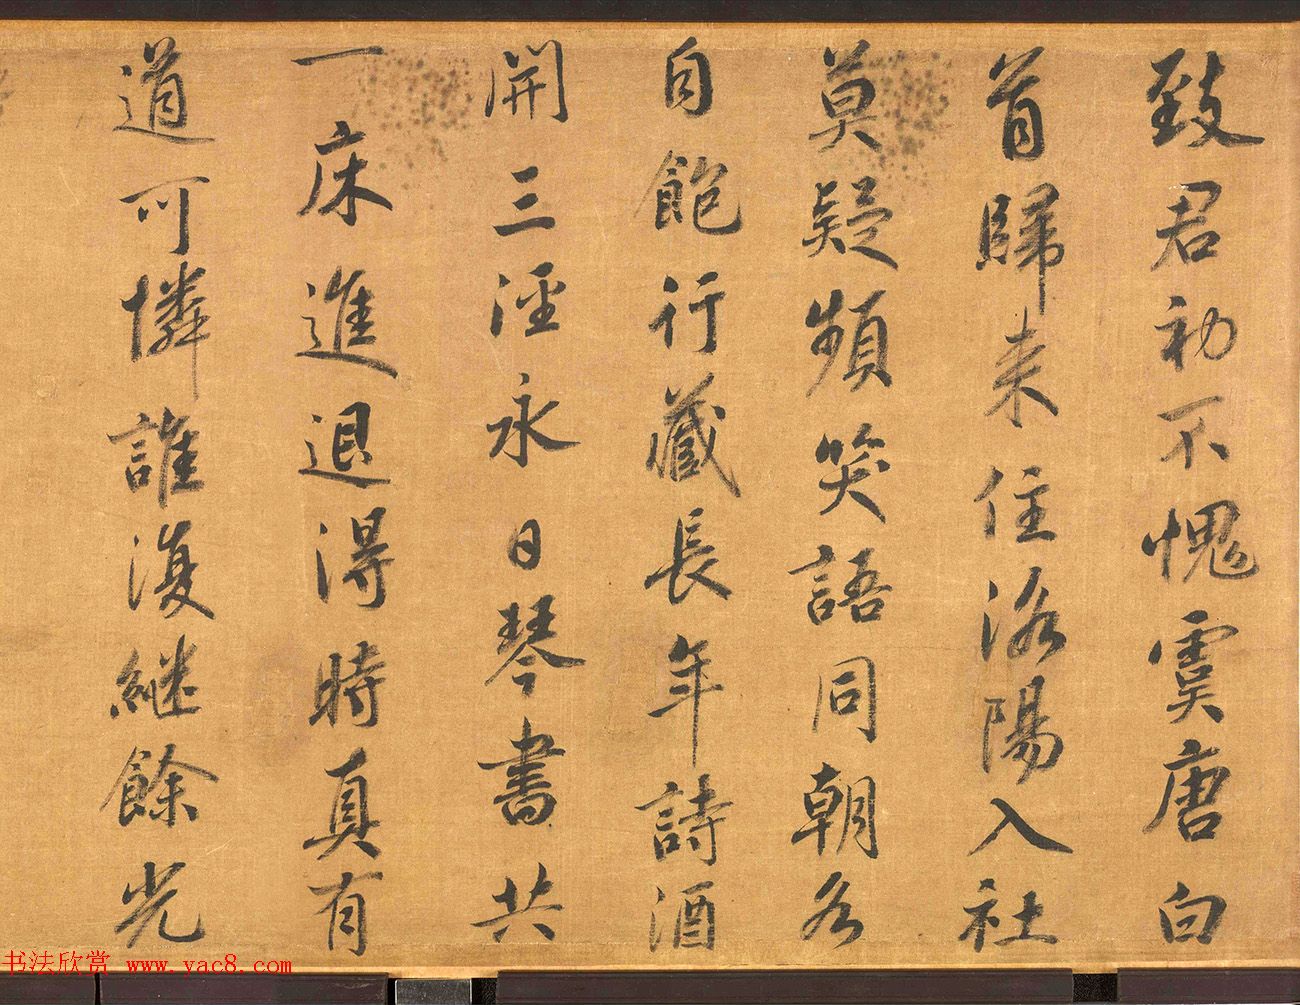 致君初不愧虞唐白
首歸来住洛陽入社
莫疑頻笑語同朝各
自飽行藏長年詩酒
開三逕永日琴書共
一床進退得時真有
道可憐誰復継餘光
书法欣赏 www.yac8.com